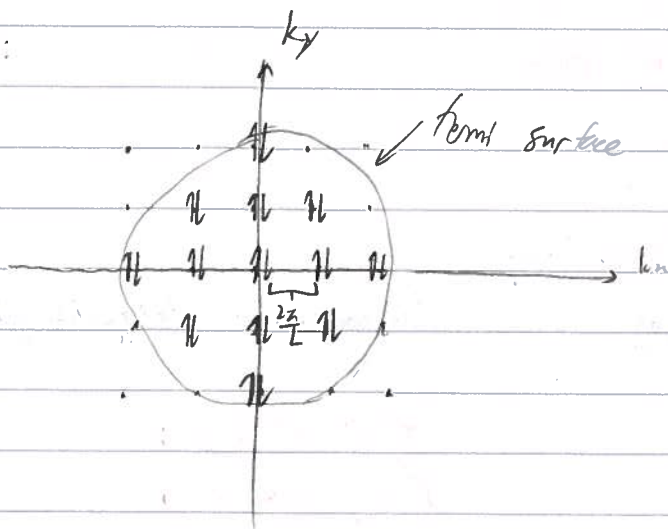 ky
Fermi surface
kx
2π
L